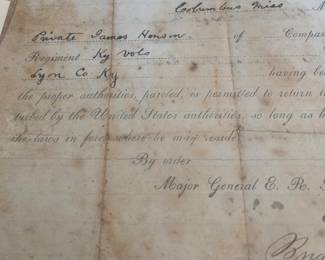 Columbus Miss
Private James Henson of Compa
Regiment Ky Vols
Lyon Co Ky having be
the proper authorities, paroled, is permitted to return t
turbed by the United States authorities, so long as h
the laws in force where he may reside.
By order
Major General E. R.